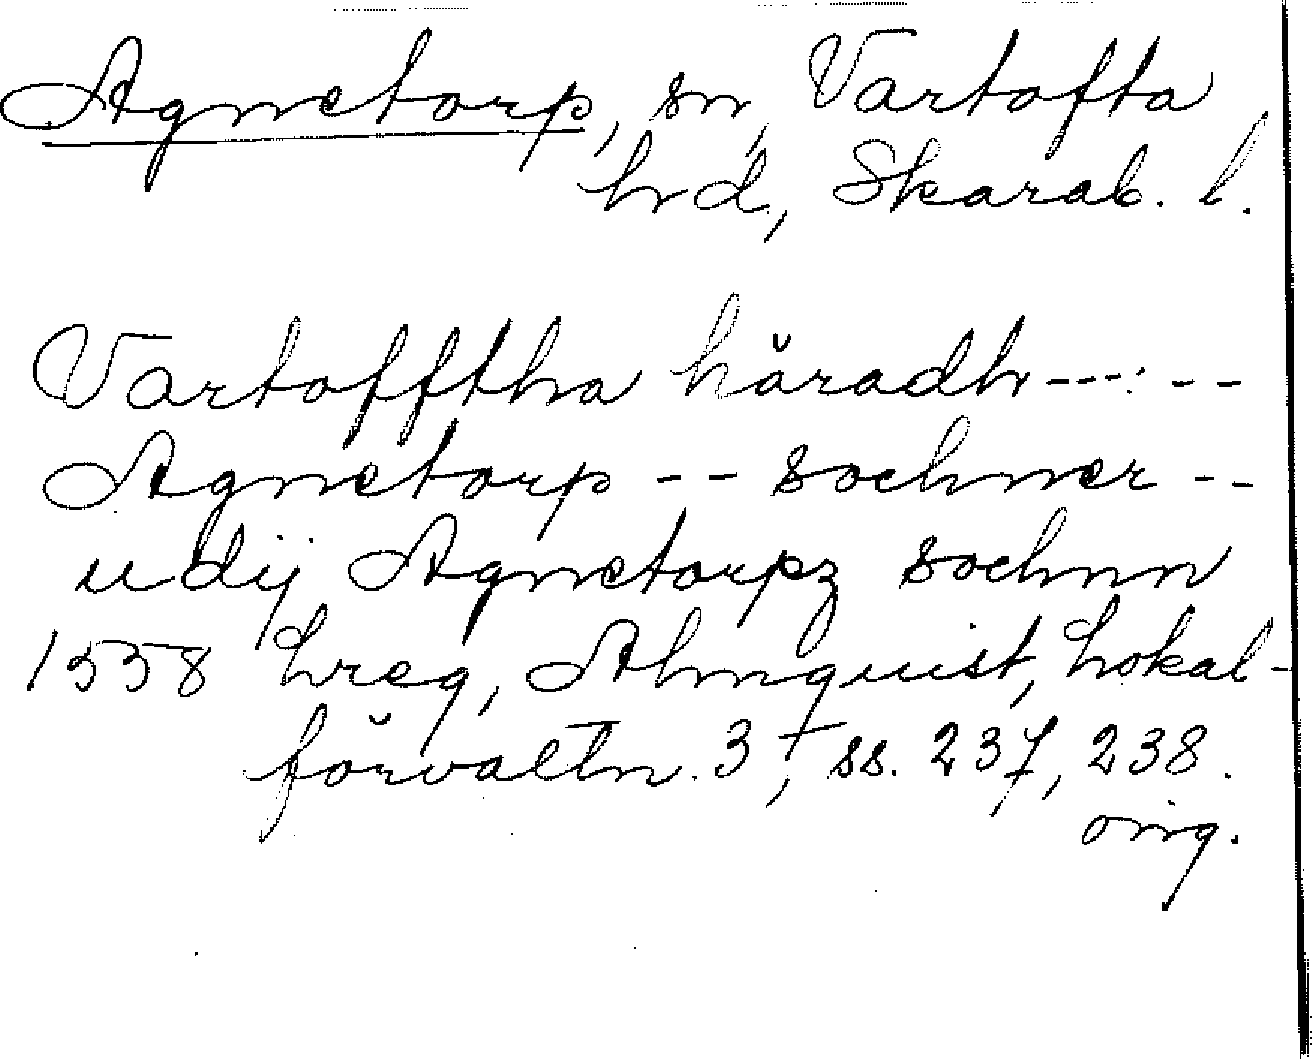 Agnetorp, sn, Vartofta
hd, Skarab. l.
Vartofftha häradh -----
Agnetorp -- sochner --
udij Agnetorpz sochnn
1558 hreg, Almquist, Lokal-
förvaltn. 3, ss. 237, 238.
orig.